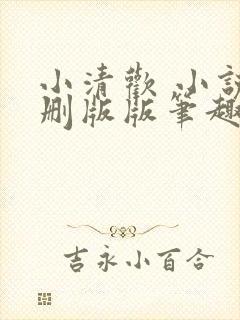 小清歡 小說
刪版版筆趣
吉永小百合